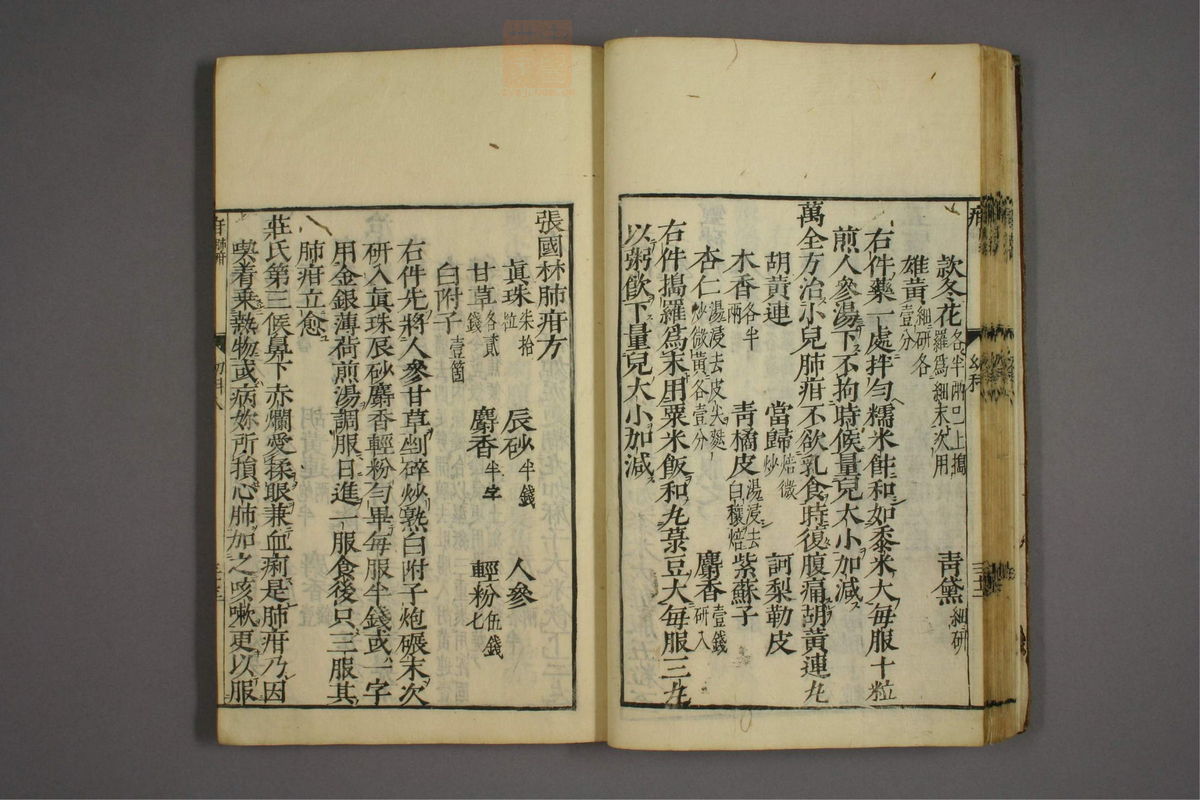 款冬花各半兩已上搗羅爲細末次用 青黛細研
雄黃細研各壹分
右件藥一處拌勻糯米飩和如黍米大每服十粒
煎人參湯下不拘時候量兒大小加減
萬全方治小兒肺疳不欲乳食時復腹痛胡黃連丸
胡黃連 當歸焙微炒 訶梨勒皮
木香各半兩 青橘皮湯浸去白穰焙 紫蘇子
杏仁湯浸去皮尖麩炒微黃各壹分 麝香壹錢研入
右件搗羅爲末用粟米飯和丸菉豆大每服三丸
以粥飲下量兒大小加減
疳
幼科
三十二
張國林肺疳方
眞珠朱拾粒 辰砂半錢 人參
甘草各貳錢 麝香半字 輕粉伍錢七
白附子壹箇
右件先將人參甘草剉碎炒熟白附子炮碾末次
研入眞珠辰砂麝香輕粉勻畢每服半錢或一字
用金銀薄荷煎湯調服日進一服食後只三服其
肺疳立愈
莊氏第三候鼻下赤爛愛揉眼兼血痢是肺疳乃因
喫着乗熱物或病妳所損心肺加之咳嗽更以服
三十三